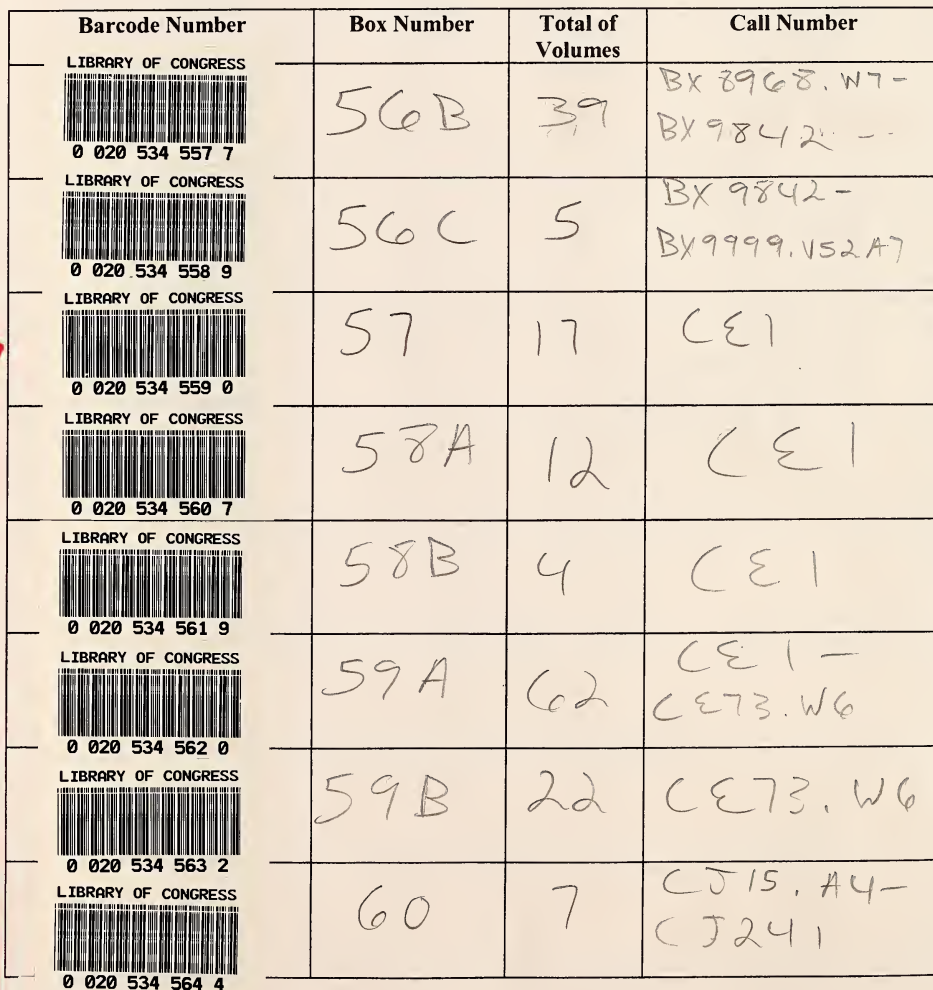 Barcode Number Box Number Total of Volumes Call Number
LIBRARY OF CONGRESS
0 020 534 557 7
56B 39 BX 8968.W7-
BX 9842 --
LIBRARY OF CONGRESS
0 020 534 558 9
56C 5 BX 9842-
BX9999.V52A7
LIBRARY OF CONGRESS
0 020 534 559 0
57 17 CE1
LIBRARY OF CONGRESS
0 020 534 560 7
58A 12 CE1
LIBRARY OF CONGRESS
0 020 534 561 9
58B 4 CE1
LIBRARY OF CONGRESS
0 020 534 562 0
59A 62 CE1-
CE73.W6
LIBRARY OF CONGRESS
0 020 534 563 2
59B 22 CE73.W6
LIBRARY OF CONGRESS
0 020 534 564 4
60 7 CJ15.A4-
CJ241